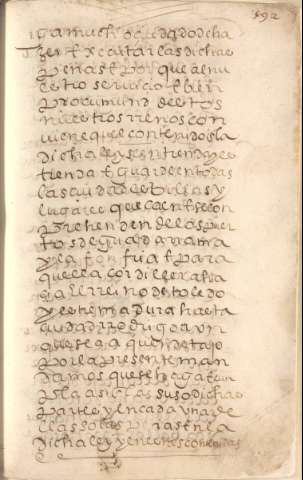 592
ga mucho cuydado d cha
zer t xecutar las dichas
penas t porque a el nu
estro serviçio t bien
pro comun destos
nuestros rreinos con
viene que contenido sla
dicha ley se entienda y es
tienda t guarde en todas
las ciudades billas y
lugares que caen se con
prehenden de los puer
tos de guadarrama
y la fonfria t para
que lla cordillera fasta
el rreino de toledo
y estremadura hasta
ciudad rodrigo aun
que sea aquende tajo
por la presente man
damos que se haga t cun
pla asi en las suso dichas
partes y en cada una de
ellas so las penas en la
dicha ley y en estos contenidas